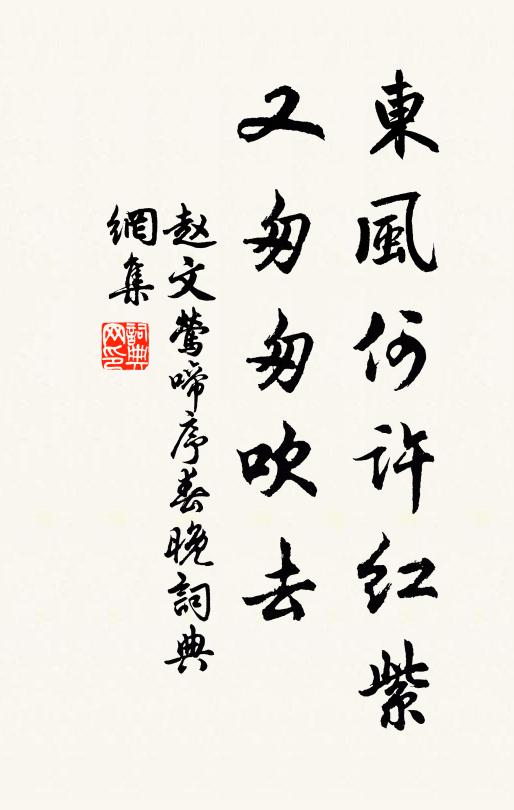 東風何許紅紫
又匆匆吹去
赵文鶯啼序春晚詞典
網集
詞典网印